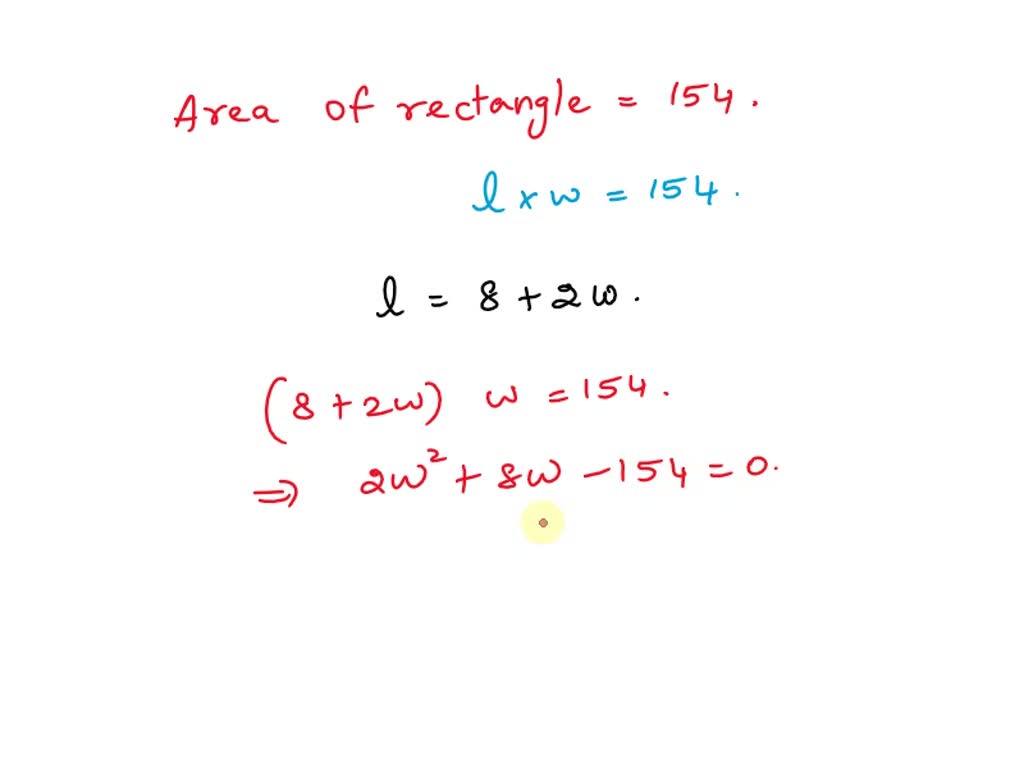 Area of rectangle = 154.
l × w = 154.
l = 8 + 2w.
(8 + 2w) w = 154.
⇒ 2w² + 8w - 154 = 0.